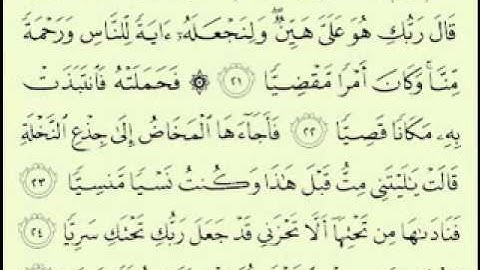 قَالَ رَبُّكِ هُوَ عَلَىَّ هَيِّنٌ ۖ وَلِنَجْعَلَهُۥٓ ءَايَةً لِّلنَّاسِ وَرَحْمَةً
مِّنَّا ۚ وَكَانَ أَمْرًا مَّقْضِيًّا ٢١ ۞ فَحَمَلَتْهُ فَٱنتَبَذَتْ
بِهِۦ مَكَانًا قَصِيًّا ٢٢ فَأَجَآءَهَا ٱلْمَخَاضُ إِلَىٰ جِذْعِ ٱلنَّخْلَةِ
قَالَتْ يَٰلَيْتَنِى مِتُّ قَبْلَ هَٰذَا وَكُنتُ نَسْيًا مَّنسِيًّا ٢٣
فَنَادَىٰهَا مِن تَحْتِهَآ أَلَّا تَحْزَنِى قَدْ جَعَلَ رَبُّكِ تَحْتَكِ سَرِيًّا ٢٤